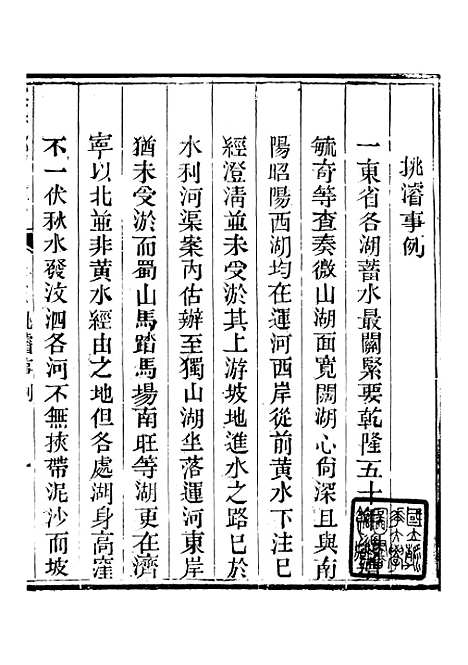 挑濬事例
一東省各湖蓄水最關緊要乾隆五十
毓奇等查奏微山湖面寬闊湖心尙深且與南
陽昭陽西湖均在運河西岸從前黃水下注已
經澄淸並未受淤其上游坡地進水之路已於
水利河渠案內估辦至獨山湖坐落運河東岸
猶未受淤而蜀山馬踏馬塲南旺等湖更在濟
寧以北並非黃水經由之地但各處湖身高窪
不一伏秋水發汶泗各河不無挾帶泥沙而坡
挑濬事例